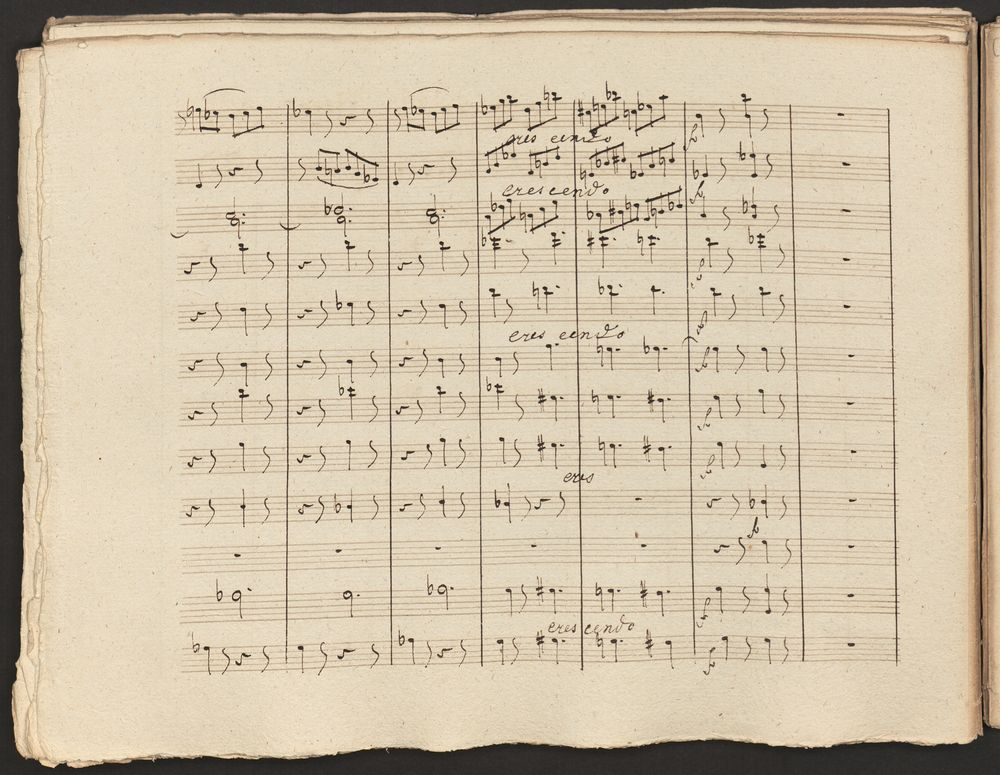 cres cendo
cres cendo
cres cendo
cres
cres cendo